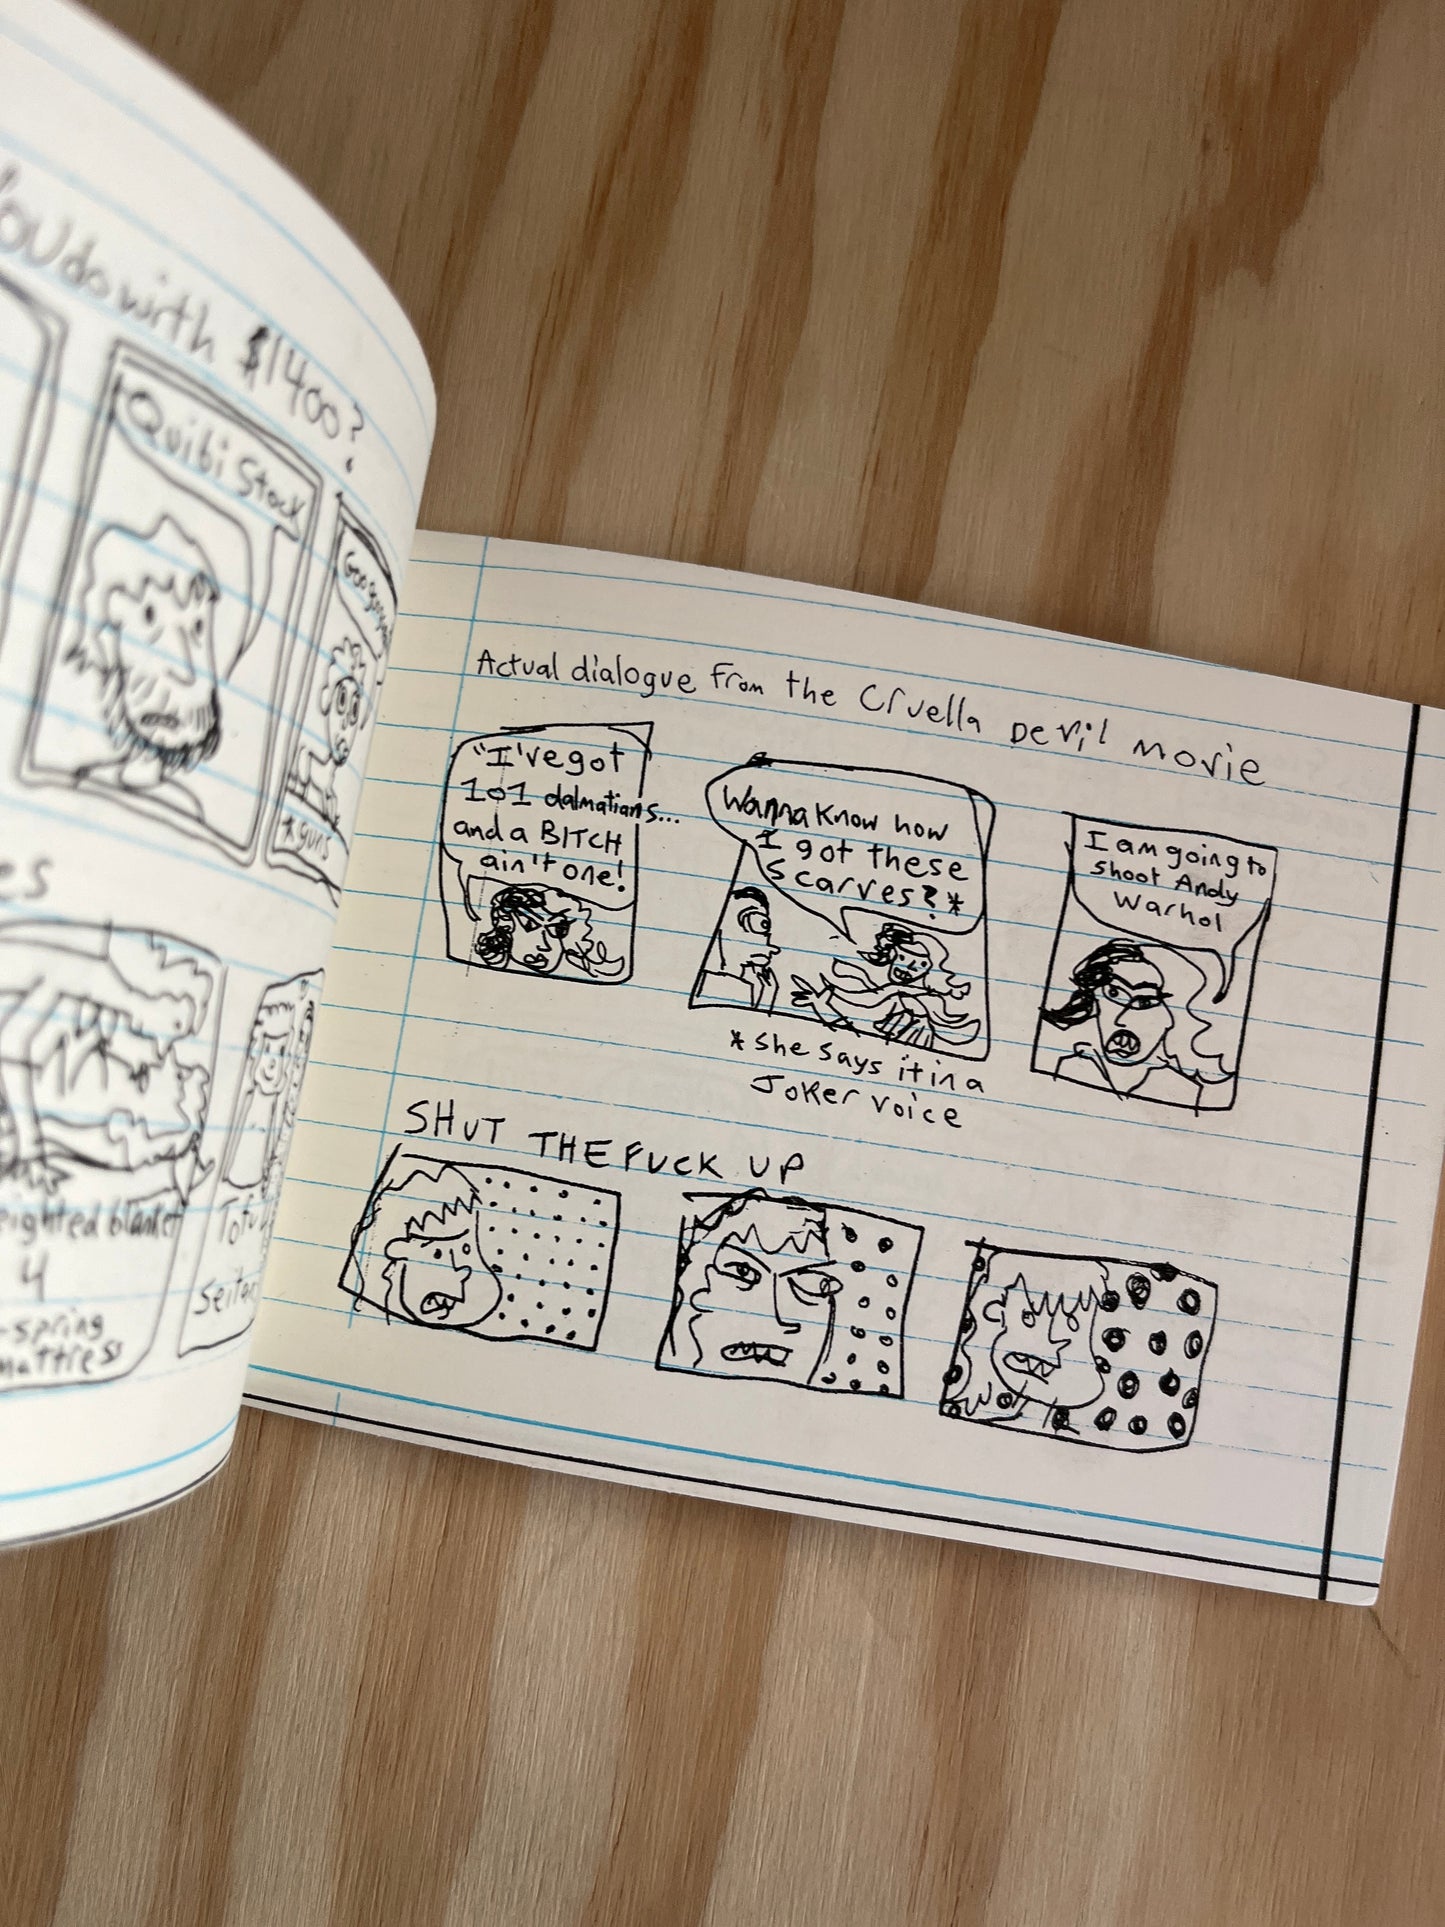 You do with $1400?
Quibi Stock
*guns
es
weighted blanket
4
-spring
mattress
Tofu
Seitan
Actual dialogue from the Cruella Devil movie
"I've got
101 dalmatians...
and a BITCH
ain't one!
Wanna Know how
I got these
scarves?*
*she says it in a
Joker voice
I am going to
shoot Andy
Warhol
SHUT THE FUCK UP